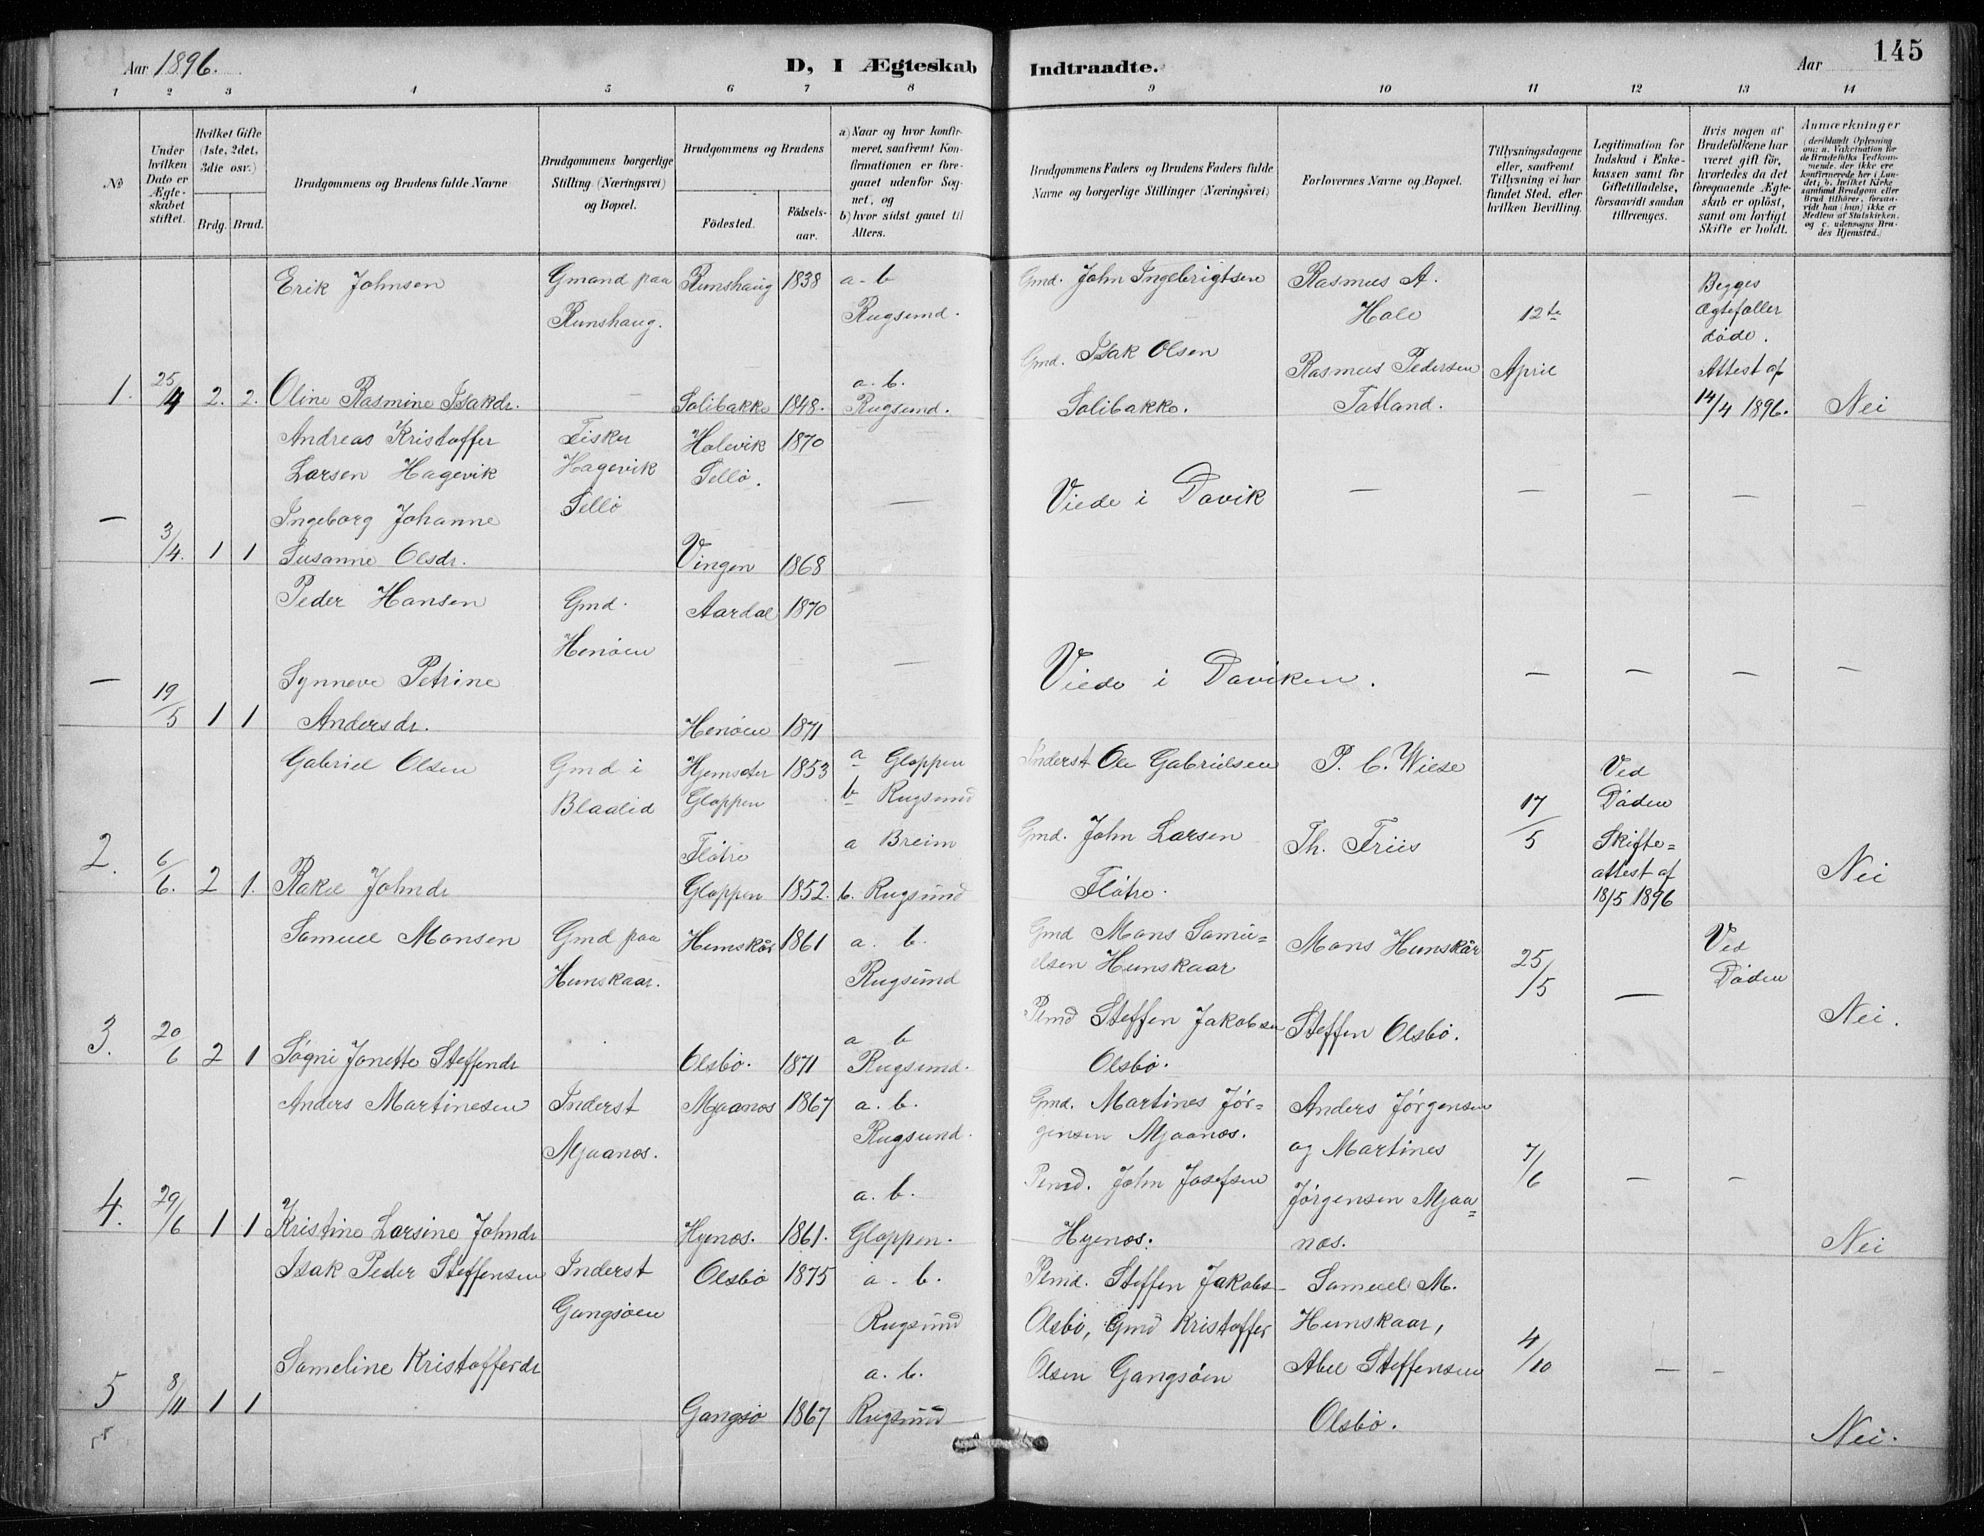 Aar 1896.
D, I Ægteskab Indtraadte.
Aar
145
1 2 3 4 5 6 7 8 9 10 11 12 13 14
No
Under hvilken Dato er Ægteskabet stiftet.
Hvilket Gifte (1ste, 2det, 3die osv.)
Brdg. Brud.
Brudgommens og Brudens fulde Navne
Brudgommens borgerlige Stilling (Næringsvei) og Bopæl.
Brudgommens og Brudens
Fødested.
Fødselsaar.
a) Naar og hvor konfirmeret, saafremt Konfirmationen er foregaaet udenfor Sognet, og
b) hvor sidst gaaet til Alters.
Brudgommens Faders og Brudens Faders fulde Navne og borgerlige Stillinger (Næringsvei)
Forlovernes Navne og Bopæl.
Tillysningsdagene eller, saafremt Tillysning ei har fundet Sted, efter hvilken Bevilling.
Legitimation for Indskud i Enkekassen samt for Giftetilladelse, forsaavidt saadan tiltrænges.
Hvis nogen af Brudefolkene har været gift før, hvorledes da det foregaaende Ægteskab er opløst, samt om lovligt Skifte er holdt.
Anmærkninger (deriblandt Oplysning om: a. Vakcination for de Brudefolks Vedkommende, der ikke ere konfirmerede her i Landet; b. hvilket Kirkesamfund Brudgom eller Brud tilhører, forsaavidt han (hun) ikke er Medlem af Statskirken, og c. udensogns Brudes Hjemsted.)
Erik Johnsen
Gmand paa Runshaug.
Runshaug 1838
a-b Rugsund.
Gmd. John Ingebrigtsen
Rasmus A. Hole
12te April
Begges Ægtefæller døde. Attest af 14/4 1896.
1. 25/4 2. 2. Oline Rasmine Isakdr.
Solibakke 1848.
a. b. Rugsund.
Gmd. Isak Olsen Solibakke.
Rasmus Pedersen Tatland.
Nei
Andreas Kristoffer Larsen Hagevik
Fisker Hagevik Sellø
Holevik Sellø. 1870
—
Viede i Davik
— — — — —
— 3/4. 1 1 Ingeborg Johanne Susanne Olsdr.
Vingen 1868
Peder Hansen
Gmd. Henøen
Aardal 1870
—
Viede i Daviken.
— — — —
— 19/5 1 1 Synneve Petrine Andersdr.
Henøen 1871
Gabriel Olsen
Gmd i Blaalid
Hjemseter Gloppen 1853
a Gloppen b Rugsund
Inderst Ole Gabrielsen
P. C. Wiese
17/5
Ved Døden Skifteattest af 18/5 1896
2. 6/6. 2 1. Rakel Johndr
Fløtre Gloppen 1852.
a Breim b. Rugsund
Gmd. John Larsen Fløtre.
Th. Friis
Nei
Samuel Monsen
Gmd paa Hunskaar.
Hunskår 1861
a. b. Rugsund
Gmd Mons Samuelsen Hunskaar
Mons Hunskår
25/5
—
Ved Døden
3. 20/6 2 1 Søgni Jonette Steffendr
Olsbø. 1871
a b Rugsund.
Plmd Steffen Jakobsen Olsbø.
Steffen Olsbø.
Nei.
Anders Martinesen
Inderst Mjaanes.
Mjaanes 1867
a. b. Rugsund.
Gmd. Martines Jørgensen Mjaanes.
Anders Jørgensen og Martines Jørgensen Mjaanes.
7/6
— —
4. 29/6 1 1 Kristine Larsine Johndr
Hyenes. 1861.
a. b. Gloppen.
Plmd. John Josefsen Hyenes.
Nei
Isak Peder Steffensen
Inderst Gangsøen
Olsbø 1875
a. b. Rugsund
Plmd. Steffen Jakobs- Olsbø, Gmd Kristoffer Olsen Gangsøen
Samuel M. Hunskaar, Abel Steffensen Olsbø.
4/10
— —
5 8/11 1 1 Sameline Kristofferdr
Gangsø 1867
a. b. Rugsund
Nei.